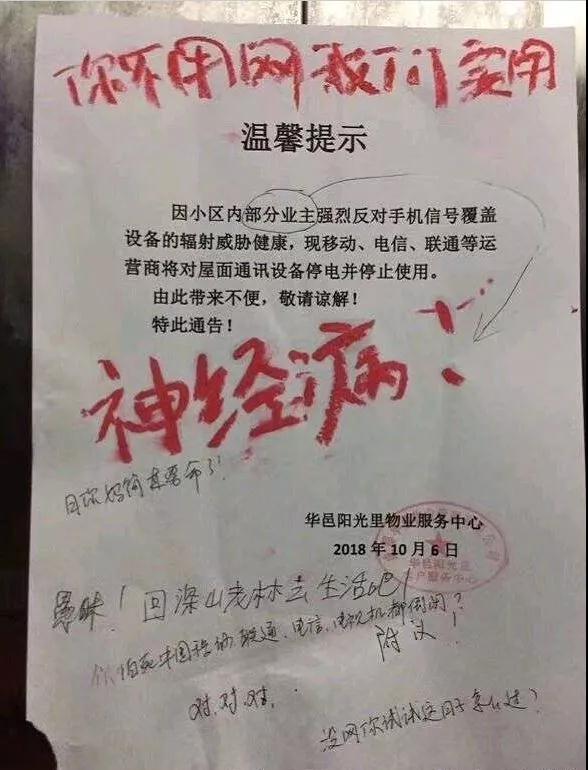 你不用网我们要用
温馨提示
因小区内部分业主强烈反对手机信号覆盖
设备的辐射威胁健康，现移动、电信、联通等运
营商将对屋面通讯设备停电并停止使用。
由此带来不便，敬请谅解！
特此通告！
神经病！
华邑阳光里物业服务中心
2018年10月6日
华邑阳光里
客户服务中心
愚昧！回深山老林去生活吧！
联通、电信、电视机都倒闭？
附议！
对.对.对.
没网你试试这日子怎么过？